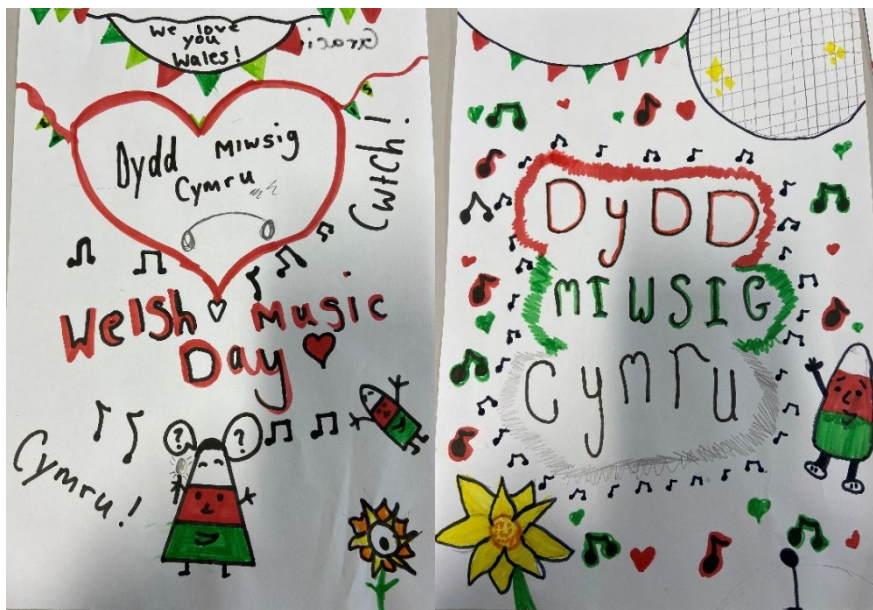 We love
you
Wales!
Graci
Dydd Miwsig
Cymru
Cwtch!
Welsh Music
Day
? ?
Cymru!
DyDD
MIWSIG
Cymru